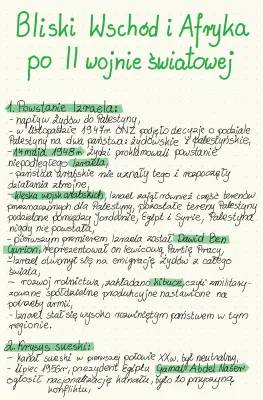 Bliski Wschód i Afryka
po II wojnie światowej
1. Powstanie Izraela:
- napływ Żydów do Palestyny,
- w listopadzie 1947r. ONZ podjęło decyzje o podziale
Palestyny na dwa państwa: żydowskie i palestyńskie,
- 14 maja 1948r. Żydzi proklamowali powstanie
niepodległego Izraela,
- państwa arabskie nie uznały tego i rozpoczęły
działania zbrojne,
- klęska wojsk arabskich, Izrael zajął również część terenów
przeznaczonych dla Palestyny, pozostałe tereny Palestyny
podzielone pomiędzy Jordanię, Egipt i Syrię, Palestyna
nigdy nie powstała,
- pierwszym premierem Izraela został Dawid Ben
Gurion, reprezentował on lewicową Partię Pracy,
- Izrael otworzył się na emigrację Żydów z całego
świata,
- rozwój rolnictwa, zakładano kibuce, czyli zmilitary-
zowane spółdzielnie produkcyjne nastawione na
potrzeby armii,
- Izrael stał się wysoko rozwiniętym państwem w tym
regionie.
2. Kryzys sueski:
- kanał sueski w pierwszej połowie XXw. był neutralny,
- lipiec 1956r., prezydent Egiptu Gamal Abdel Naser
ogłosił nacjonalizację kanału, było to przyczyną
konfliktu,